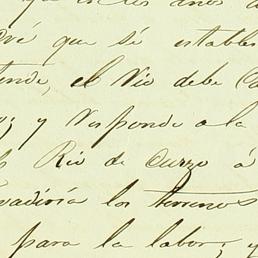 en los años
que se estable
el Rio debe
y responde a la
Rio de Curzo á
vadiria los terrenos
para la labor, y